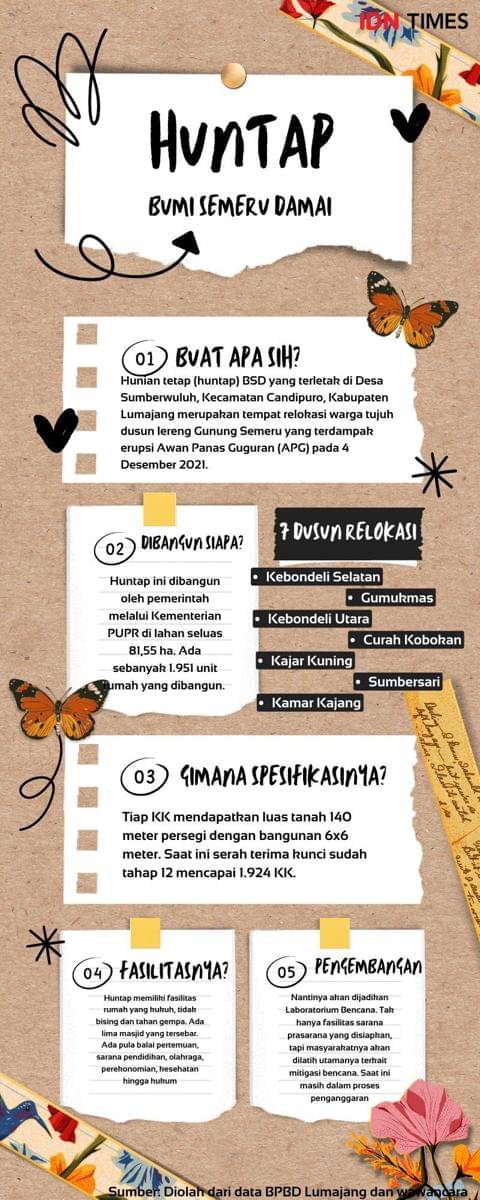 IDN TIMES
HUNTAP
BUMI SEMERU DAMAI
01 BUAT APA SIH?
Hunian tetap (huntap) BSD yang terletak di Desa
Sumberwuluh, Kecamatan Candipuro, Kabupaten
Lumajang merupakan tempat relokasi warga tujuh
dusun lereng Gunung Semeru yang terdampak
erupsi Awan Panas Guguran (APG) pada 4
Desember 2021.
02 DIBANGUN SIAPA?
Huntap ini dibangun
oleh pemerintah
melalui Kementerian
PUPR di lahan seluas
81,55 ha. Ada
sebanyak 1.951 unit
rumah yang dibangun.
7 DUSUN RELOKASI
• Kebondeli Selatan
• Gumukmas
• Kebondeli Utara
• Curah Kobokan
• Kajar Kuning
• Sumbersari
• Kamar Kajang
03 GIMANA SPESIFIKASINYA?
Tiap KK mendapatkan luas tanah 140
meter persegi dengan bangunan 6x6
meter. Saat ini serah terima kunci sudah
tahap 12 mencapai 1.924 KK.
04 FASILITASNYA?
Huntap memiliki fasilitas
rumah yang kukuh, tidak
bising dan tahan gempa. Ada
lima masjid yang tersebar.
Ada pula balai pertemuan,
sarana pendidikan, olahraga,
perekonomian, kesehatan
hingga hukum
05 PENGEMBANGAN
Nantinya akan dijadikan
Laboratorium Bencana. Tak
hanya fasilitas sarana
prasarana yang disiapkan,
tapi masyarakatnya akan
dilatih utamanya terkait
mitigasi bencana. Saat ini
masih dalam proses
penganggaran
Sumber: Diolah dari data BPBD Lumajang dan wawancara